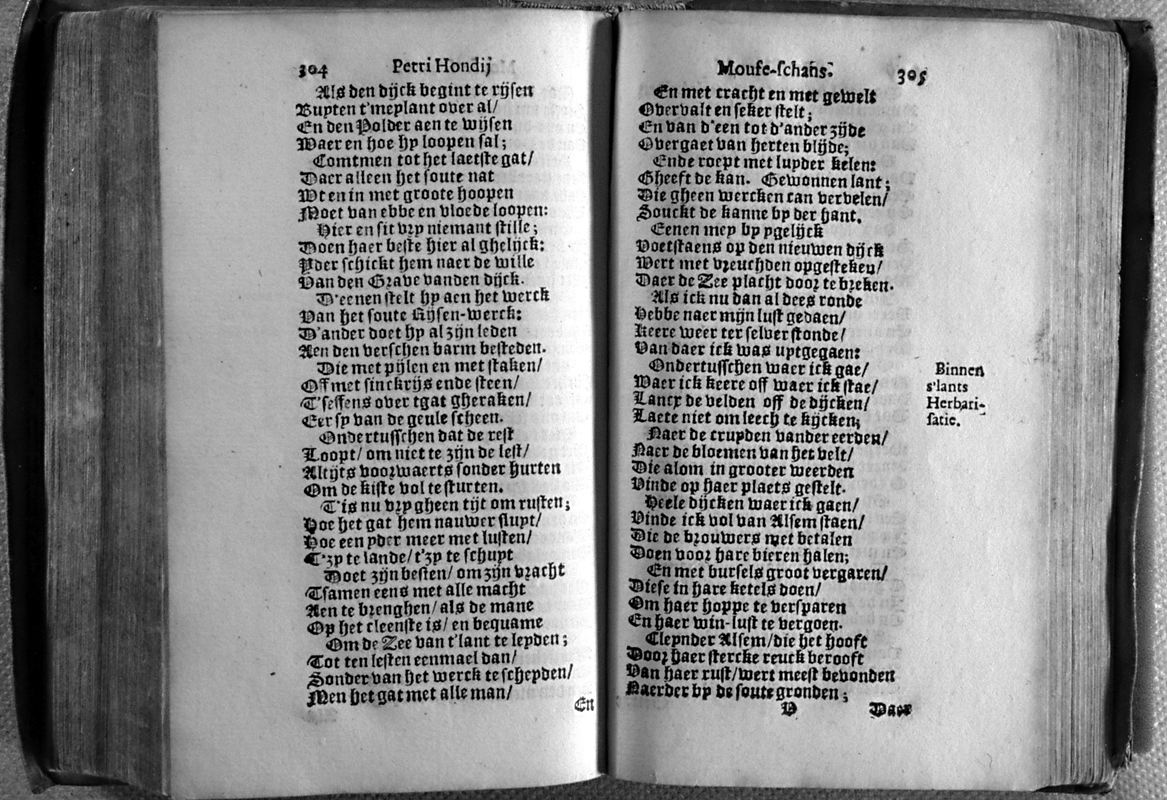 304 Petri Hondij
Als den dijck begint te rijsen
Buyten t'meplant over al/
En den Polder aen te wijsen
Waer en hoe hy loopen sal;
Comtmen tot het laetste gat/
Daer alleen het soute nat
Wt en in met groote hoopen
Moet van ebbe en vloede loopen:
Hier en sit vry niemant stille;
Doen haer beste hier al ghelijck:
Yder schickt hem naer de wille
Van den Grave vanden dijck.
D'eenen stelt hy aen het werck
Van het soute Rijsen-werck:
D'ander doet hy al zijn leden
Aen den verschen barm besteden.
Die met pijlen en met staken/
Off met sinckrijs ende steen/
T'seffens over tgat gheraken/
Eer sy van de geule scheen.
Ondertusschen dat de rest
Loopt/ om niet te zijn de lest/
Altijts voorwaerts sonder hurten
Om de kiste vol te sturten.
T'is nu vry gheen tijt om rusten;
Hoe het gat hem nauwer sluyt/
Hoe een yder meer met lusten/
T'zy te lande/ t'zy te schuyt
Doet zijn besten/ om zijn vracht
Tsamen eens met alle macht
Aen te brenghen/ als de mane
Op het cleenste is/ en bequame
Om de Zee van t'lant te leyden;
Tot ten lesten eenmael dan/
Sonder van het werck te scheyden/
Men het gat met alle man/
En
Mouse-schans. 305
En met cracht en met gewelt
Overvalt en seker stelt;
En van d'een tot d'ander zijde
Overgaet van herten blijde;
Ende roept met luyder kelen:
Gheeft de kan. Gewonnen lant;
Die gheen wercken can vervelen/
Souckt de kanne by der hant.
Eenen mey by ygelijck
Voetstaens op den nieuwen dijck
Wert met vreuchden opgesteken/
Daer de Zee placht door te breken.
Als ick nu dan al dees ronde
Hebbe naer mijn lust gedaen/
Keere weer ter selver stonde/
Van daer ick was uytgegaen:
Ondertusschen waer ick gae/
Waer ick keere off waer ick stae/
Lancx de velden off de dijcken/
Laete niet om leech te kijcken;
Naer de cruyden vander eerden/
Naer de bloemen van het velt/
Die alom in grooter weerden
Vinde op haer plaets gestelt.
Heele dijcken waer ick gaen/
Vinde ick vol van Alsem staen/
Die de brouwers met betalen
Doen voor hare bieren halen;
En met bursels groot vergaren/
Diese in hare ketels doen/
Om haer hoppe te versparen
En haer win-lust te vergoen.
Cleynder Alsem/ die het hooft
Door haer stercke reuck berooft
Van haer rust/ wert meest bevonden
Naerder by de soute gronden;
V Daer
Binnen
s'lants
Herbari-
satie.